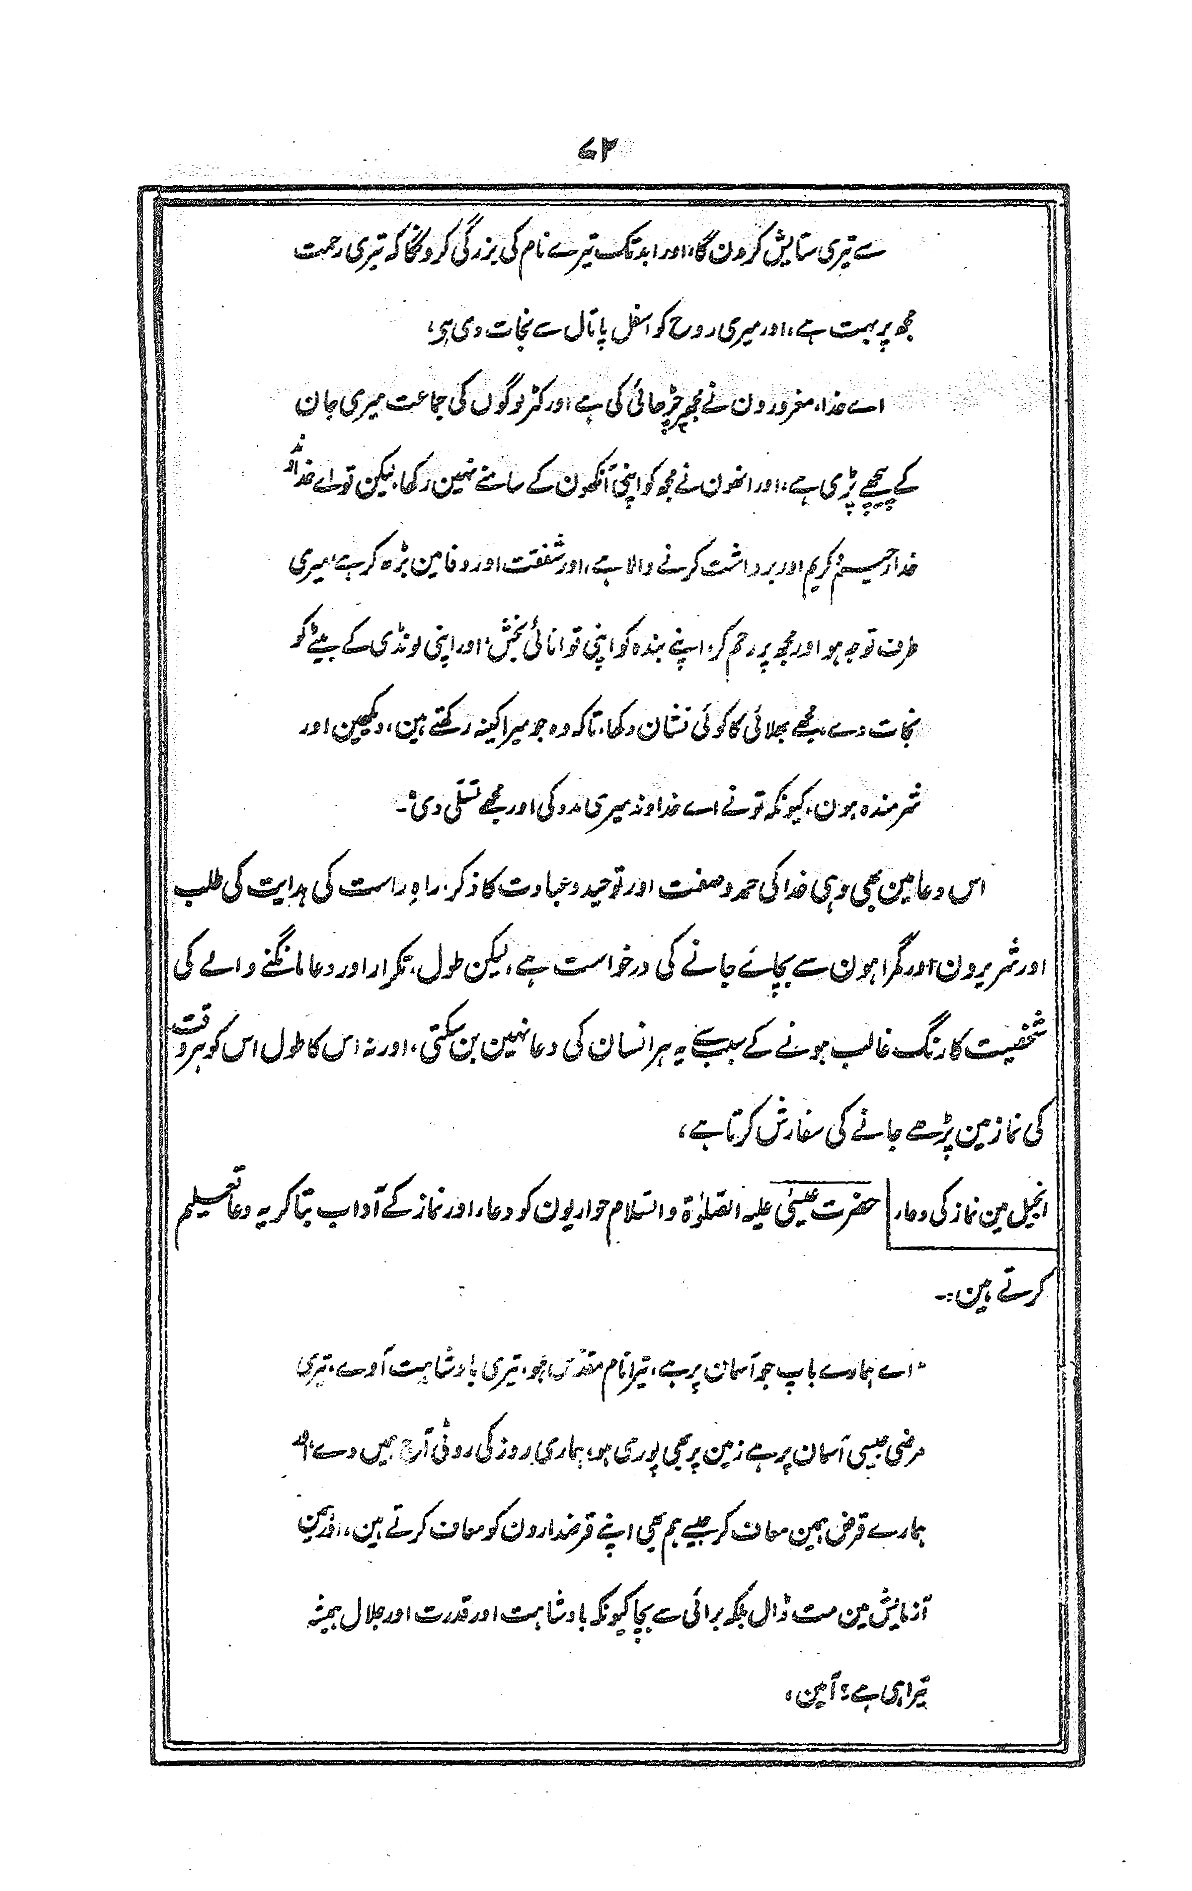 ۷۲
سے تیری ستایش کرون گا، اور ابد تک تیرے نام کی بزرگی کرونگا کہ تیری رحمت
مجھ پر بہت ہے، اور میری روح کو اسفل پاتال سے نجات دی ہی،
اے خدا، مغرورون نے مجھپر چڑھائی کی ہے اور کٹر لوگوں کی جماعت میری جان
کے پیچھے پڑی ہے، اور انھون نے مجھ کو اپنی آنکھون کے سامنے نہین رکھا، لیکن تو اے خداوند
خدا رحیم کریم اور برداشت کرنے والا ہے، اور شفقت اور وفا مین بڑھ کر ہے، میری
طرف توجہ ہو اور مجھ پر رحم کر، اپنے بندہ کو اپنی توانائی بخش، اور اپنی لونڈی کے بیٹے کو
نجات دے، مجھے بھلائی کا کوئی نشان دکھا، تاکہ وہ جو میرا کینہ رکھتے ہین، دیکھین اور
شرمندہ ہون، کیونکہ تو نے اے خداوند میری مدد کی اور مجھے تسلی دی"۔
اس دعا مین بھی وہی خدا کی حمد و صفت اور توحید و عبادت کا ذکر، راہِ راست کی ہدایت کی طلب
اور شریرون اور گمراہون سے بچائے جانے کی درخواست ہے، لیکن طول، تکرار اور دعا مانگنے والے کی
شخصیت کا رنگ غالب ہونے کے سبب سے یہ ہر انسان کی دعا نہین بن سکتی، اور نہ اس کا طول اس کو ہر وقت
کی نماز مین پڑھے جانے کی سفارش کرتا ہے،
انجیل مین نماز کی دعاء حضرت عیسیٰ علیہ الصلوٰۃ والسلام حواریون کو دعاء اور نماز کے آداب بتا کر یہ دعا تعلیم
کرتے ہین:-
"اے ہمارے باپ جو آسمان پر ہے، تیرا نام مقدس ہو، تیری بادشاہت آوے، تیری
مرضی جیسی آسمان پر ہے زمین پر بھی پوری ہو، ہماری روز کی روٹی آج ہمیں دے، اور
ہمارے قرض ہمین معاف کر جیسے ہم بھی اپنے قرضدارون کو معاف کرتے ہین، اور ہمین
آزمایش مین مت ڈال بلکہ برائی سے بچا کیونکہ بادشاہت اور قدرت اور جلال ہمیشہ
تیرا ہی ہے؛ آمین،